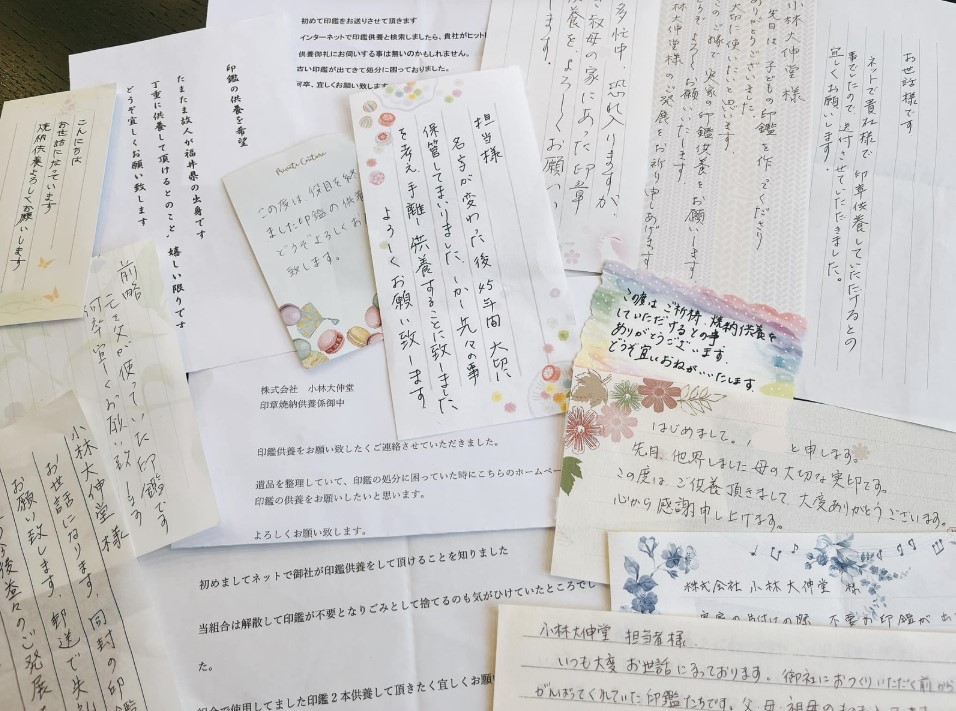 初めて印鑑をお送りさせて頂きます
インターネットで印鑑供養と検索しましたら、貴社がヒット
供養御礼にお伺いする事は無いのかもしれません。
古い印鑑が出てきて処分に困っておりました。
何卒、宜しくお願い致しま
印鑑の供養を希望
たまたま故人が福井県の出身です
丁重に供養して頂けるとのこと、嬉しい限りです
どうぞ宜しくお願い致します
こんにちは
お世話になっています
焼納供養よろしくお願いします
この度は役目を終
ました印鑑の供養
どうぞよろしくお
致します。
担当様
名字が変わった後45年間大切に
保管してまいりました。しかし先々の事
を考え、手離し供養することに致しました。
よろしくお願い致します。
多忙中 恐れ入りますが、
叔母の家にあった印章
供養を、よろしくお願い
ます。
小林大伸堂様
先日は、子どもの印鑑を作ってくださり
ありがとうございました。
大切に使いたいと思います。
この縁で、実家の印鑑供養をお願いします
どうぞよろしくお願いいたします。
大伸堂様のご発展をお祈り申しあげます
お世話様です
ネットで貴社様で印章供養していただけるとの
事でしたので送付させていただきました。
宜しくお願いします。
この度はご祈祷、焼納供養を
していただけるとの事
ありがとうございます。
どうぞ宜しくおねがいいたします。
はじめまして。
と申します。
先月、他界しました母の大切な実印です。
この度は、ご供養頂きまして、大変ありがとうございます。
心から感謝申し上げます。
株式会社 小林大伸堂 様
小林大伸堂 担当者様
いつも大変お世話になっております。御社におつくりいただく前から
がんばってくれていた印鑑たちです。父・母・祖母の
前略
亡き父が使っていた印鑑です
何卒宜しくお願い致します
小林大伸堂様
お世話になります。同封の印鑑
お願い致します。郵送で失礼
今後益々のご発展
株式会社 小林大伸堂
印章焼納供養係御中
印鑑供養をお願い致したくご連絡させていただきました。
遺品を整理していて、印鑑の処分に困っていた時にこちらのホームページ
印鑑の供養をお願いしたいと思います。
よろしくお願い致します。
初めましてネットで御社が印鑑供養をして頂けることを知りました
当組合は解散して印鑑が不要となりごみとして捨てるのも気がひけていたところでし
た。
組合で使用してました印鑑2本供養して頂きたく宜しくお願い